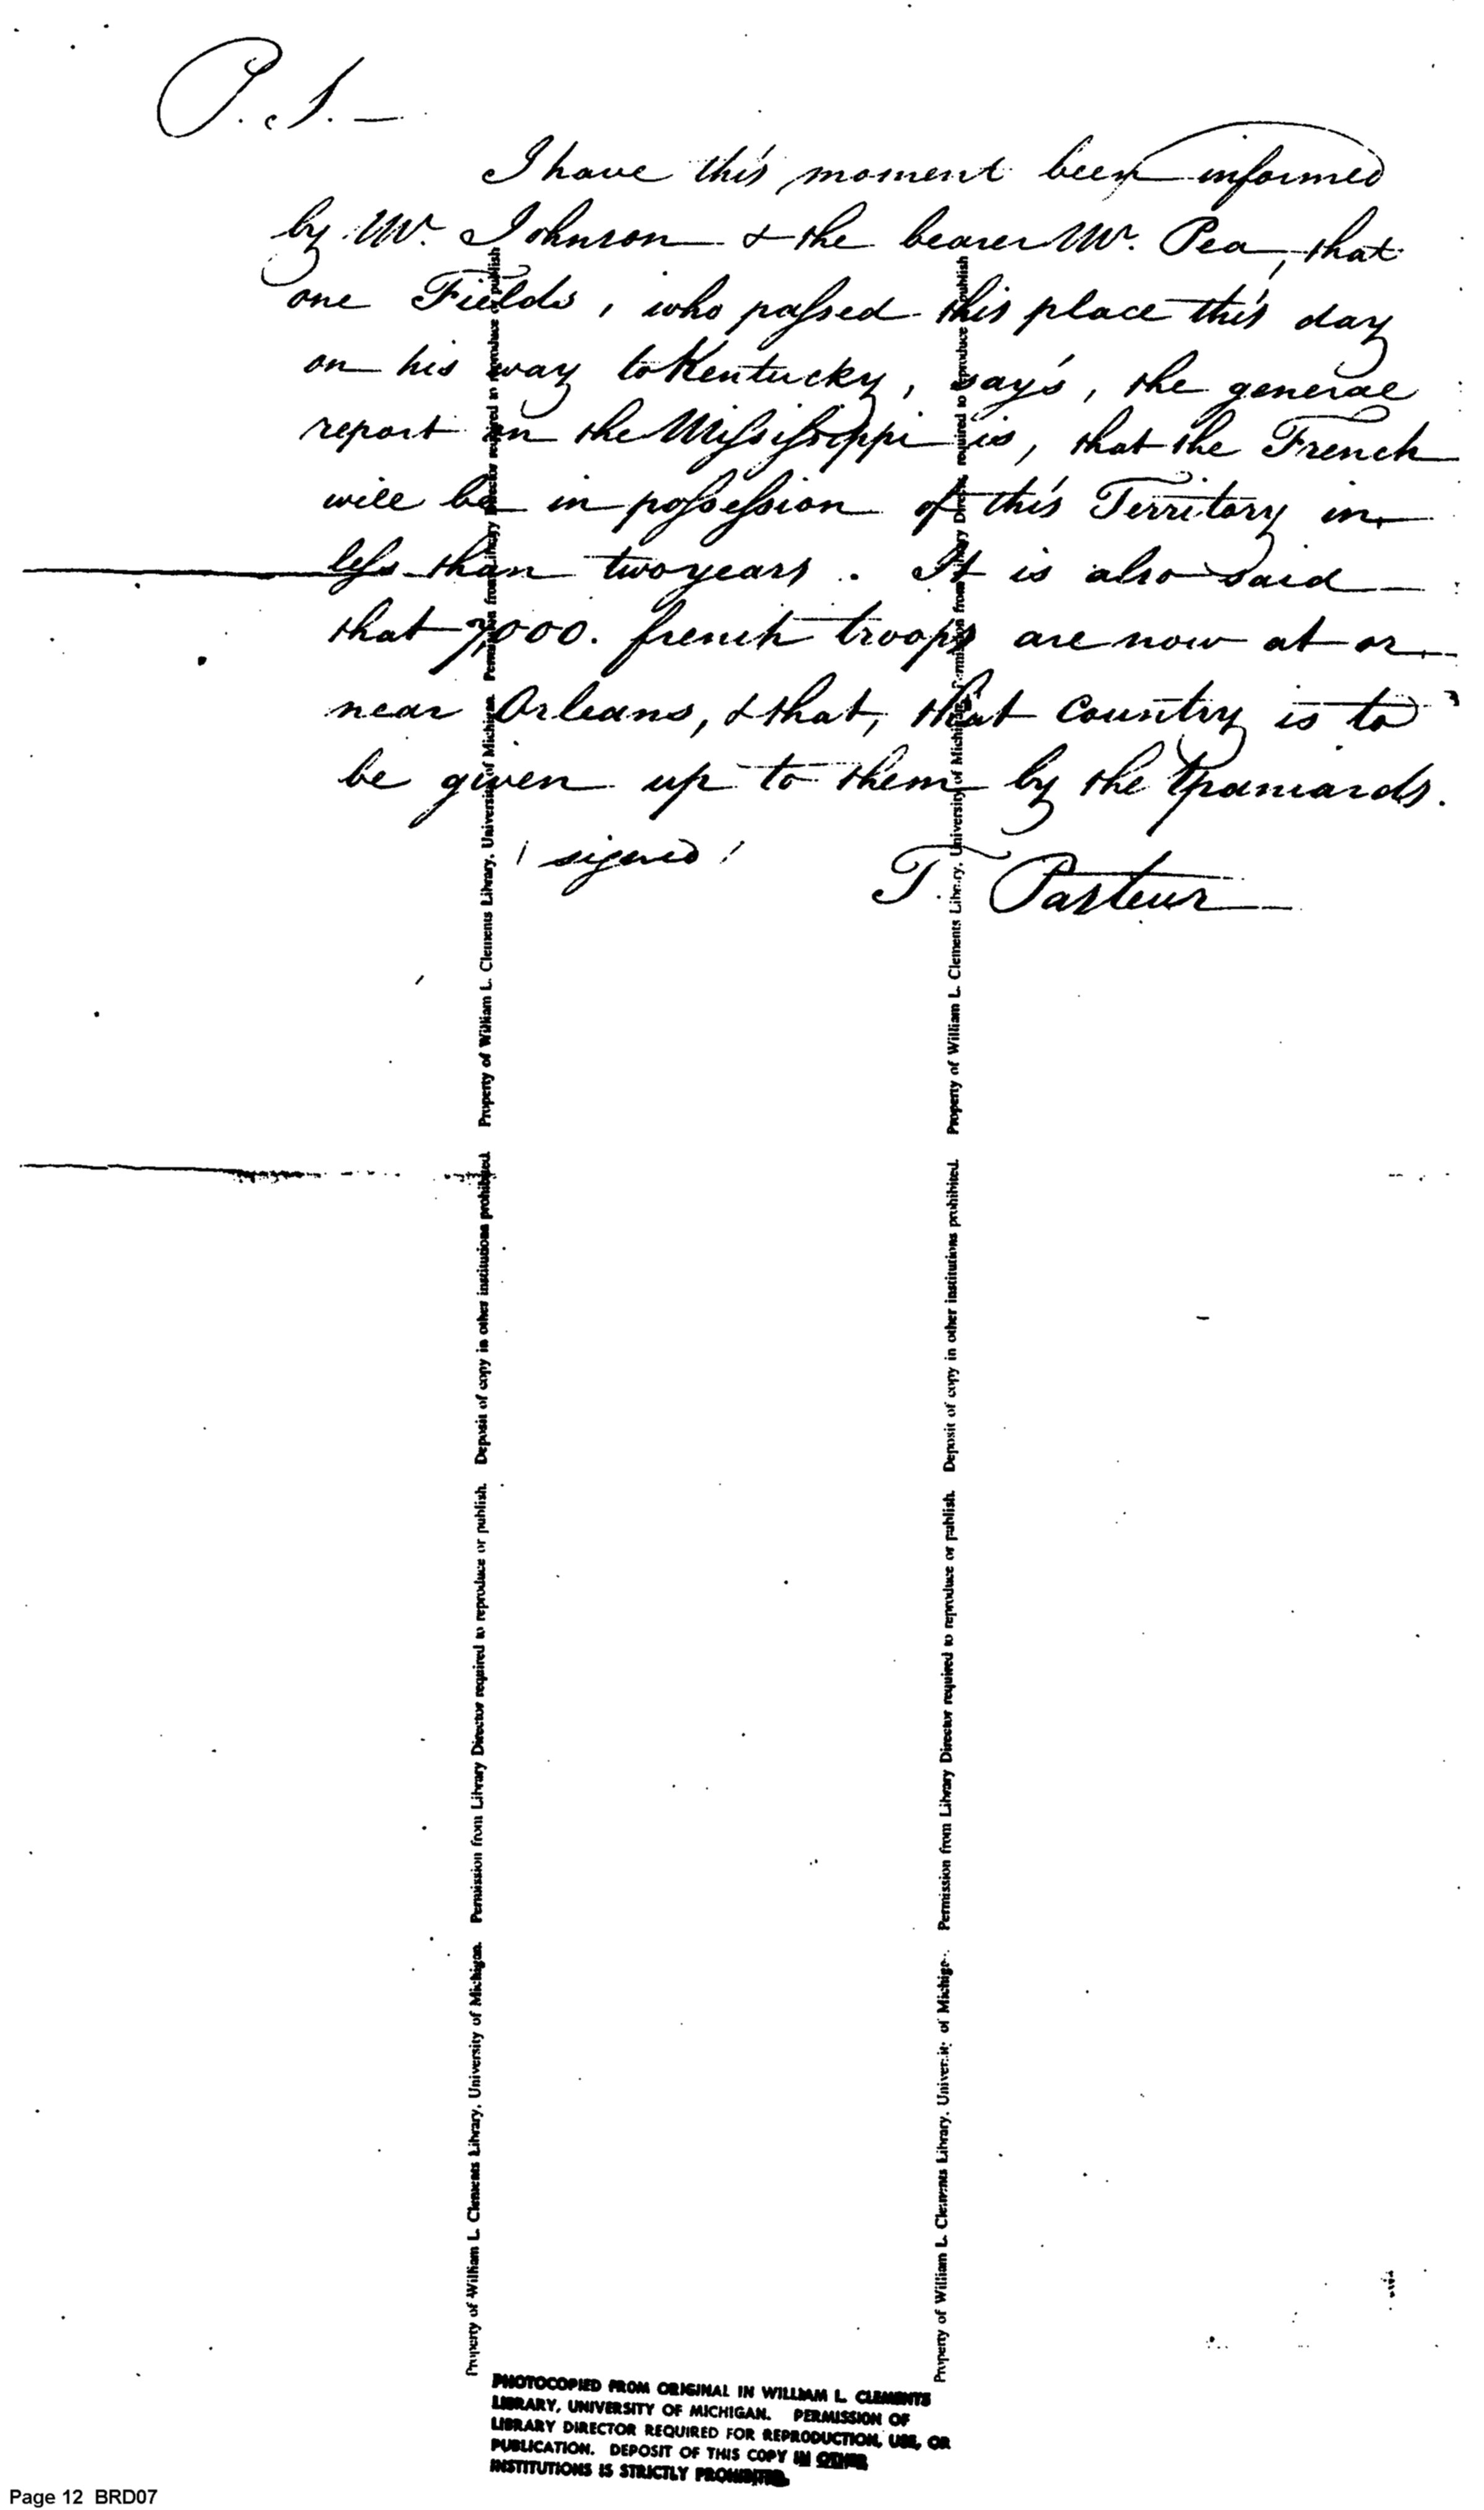 P.S.—
I have this moment been informed
by Mr. Johnson & the bearer Mr. Pea, that
one Fields, who passed this place this day
on his way to Kentucky, say's, the general
report on the Mississippi is, that the French
will be in possession of this Territory in
less than two years. It is also said
that 7,000. french troops are now at or
near Orleans, & that, that Country is to
be given up to them by the Spaniards.
/signed/ T. Pasteur
Property of William L. Clements Library, University of Michigan. Permission from Library Director required to reproduce or publish. Deposit of copy in other institutions prohibited. Property of William L. Clements Library, University of Michigan. Permission from Library Director required to reproduce or publish
Property of William L. Clements Library, University of Michigan. Permission from Library Director required to reproduce or publish. Deposit of copy in other institutions prohibited. Property of William L. Clements Library, University of Michigan. Permission from Library Director required to reproduce or publish
PHOTOCOPIED FROM ORIGINAL IN WILLIAM L. CLEMENTS
LIBRARY, UNIVERSITY OF MICHIGAN. PERMISSION OF
LIBRARY DIRECTOR REQUIRED FOR REPRODUCTION, USE, OR
PUBLICATION. DEPOSIT OF THIS COPY IN OTHER
INSTITUTIONS IS STRICTLY PROHIBITED.
Page 12 BRD07